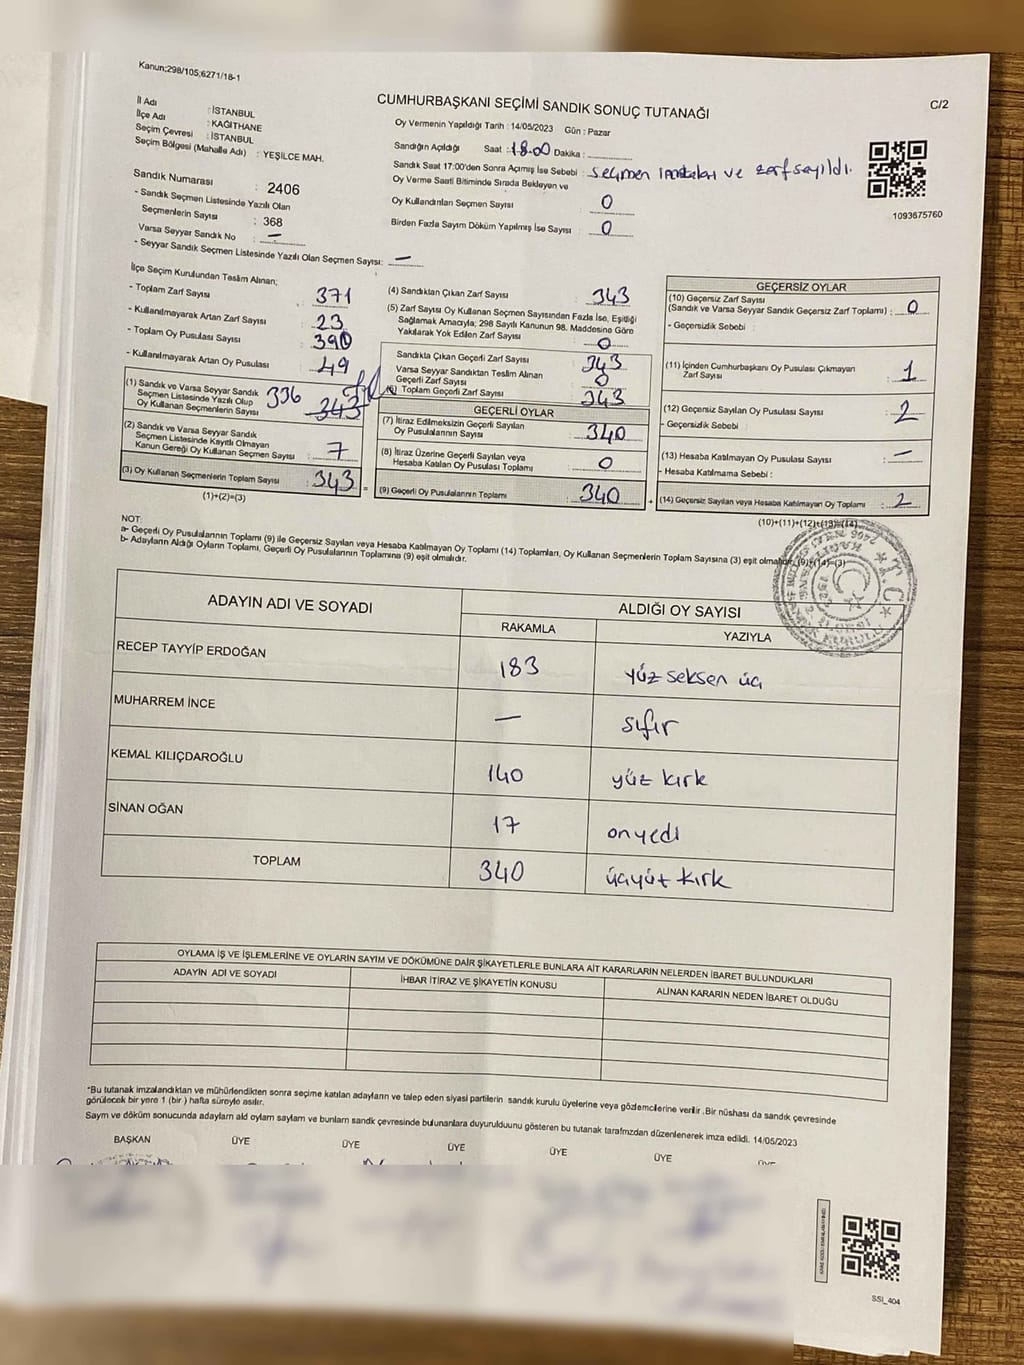 Kanun;298/105,6271/18-1
CUMHURBAŞKANI SEÇİMİ SANDIK SONUÇ TUTANAĞI
C/2
İl Adı : İSTANBUL
İlçe Adı : KAĞITHANE
Seçim Çevresi : İSTANBUL
Seçim Bölgesi (Mahalle Adı) : YEŞİLCE MAH.
Oy Vermenin Yapıldığı Tarih : 14/05/2023 Gün : Pazar
Sandığın Açıldığı Saat : 18.00 Dakika :
Sandık Saat 17:00'den Sonra Açımış İse Sebebi : seçmen imzaları ve zarf sayıldı.
Oy Verme Saati Bitiminde Sırada Bekleyen ve
Oy Kullandırılan Seçmen Sayısı 0
Birden Fazla Sayım Döküm Yapılmış İse Sayısı : 0
1093675760
Sandık Numarası : 2406
- Sandık Seçmen Listesinde Yazılı Olan
Seçmenlerin Sayısı : 368
Varsa Seyyar Sandık No : —
- Seyyar Sandık Seçmen Listesinde Yazılı Olan Seçmen Sayısı: —
İlçe Seçim Kurulundan Teslim Alınan;
- Toplam Zarf Sayısı : 371
- Kullanılmayarak Artan Zarf Sayısı : 23
- Toplam Oy Pusulası Sayısı : 390
- Kullanılmayarak Artan Oy Pusulası : 49
(1) Sandık ve Varsa Seyyar Sandık
Seçmen Listesinde Yazılı Olup
Oy Kullanan Seçmenlerin Sayısı 336 343
(2) Sandık ve Varsa Seyyar Sandık
Seçmen Listesinde Kayıtlı Olmayan
Kanun Gereği Oy Kullanan Seçmen Sayısı : 7
(3) Oy Kullanan Seçmenlerin Toplam Sayısı : 343 =
(1)+(2)=(3)
(4) Sandıktan Çıkan Zarf Sayısı : 343
(5) Zarf Sayısı Oy Kullanan Seçmen Sayısından Fazla İse, Eşitliği
Sağlamak Amacıyla; 298 Sayılı Kanunun 98. Maddesine Göre
Yakılarak Yok Edilen Zarf Sayısı : 0
Sandıkta Çıkan Geçerli Zarf Sayısı : 343
Varsa Seyyar Sandıktan Teslim Alınan
Geçerli Zarf Sayısı : 0
(6) Toplam Geçerli Zarf Sayısı : 343
GEÇERLİ OYLAR
(7) İtiraz Edilmeksizin Geçerli Sayılan
Oy Pusulalarının Sayısı : 340
(8) İtiraz Üzerine Geçerli Sayılan veya
Hesaba Katılan Oy Pusulası Toplamı : 0
(9) Geçerli Oy Pusulalarının Toplamı : 340 +
GEÇERSİZ OYLAR
(10) Geçersiz Zarf Sayısı
(Sandık ve Varsa Seyyar Sandık Geçersiz Zarf Toplamı) : 0
- Geçersizlik Sebebi :
(11) İçinden Cumhurbaşkanı Oy Pusulası Çıkmayan
Zarf Sayısı : 1
(12) Geçersiz Sayılan Oy Pusulası Sayısı : 2
- Geçersizlik Sebebi :
(13) Hesaba Katılmayan Oy Pusulası Sayısı : —
- Hesaba Katılmama Sebebi :
(14) Geçersiz Sayılan veya Hesaba Katılmayan Oy Toplamı : 2
(10)+(11)+(12)+(13)=(14)
NOT:
a- Geçerli Oy Pusulalarının Toplamı (9) ile Geçersiz Sayılan veya Hesaba Katılmayan Oy Toplamı (14) Toplamları, Oy Kullanan Seçmenlerin Toplam Sayısına (3) eşit olmalıdır. (9)+(14)=(3)
b- Adayların Aldığı Oyların Toplamı, Geçerli Oy Pusulalarının Toplamına (9) eşit olmalıdır.
ADAYIN ADI VE SOYADI
ALDIĞI OY SAYISI
RAKAMLA YAZIYLA
RECEP TAYYİP ERDOĞAN 183 yüz seksen üç
MUHARREM İNCE — sıfır
KEMAL KILIÇDAROĞLU 140 yüz kırk
SİNAN OĞAN 17 onyedi
TOPLAM 340 üçyüz kırk
OYLAMA İŞ VE İŞLEMLERİNE VE OYLARIN SAYIM VE DÖKÜMÜNE DAİR ŞİKAYETLERLE BUNLARA AİT KARARLARIN NELERDEN İBARET BULUNDUKLARI
ADAYIN ADI VE SOYADI İHBAR İTİRAZ VE ŞİKAYETİN KONUSU ALINAN KARARIN NEDEN İBARET OLDUĞU
*Bu tutanak imzalandıktan ve mühürlendikten sonra seçime katılan adayların ve talep eden siyasi partilerin sandık kurulu üyelerine veya gözlemcilerine verilir .Bir nüshası da sandık çevresinde
görülecek bir yere 1 (bir ) hafta süreyle asılır.
Sayım ve döküm sonucunda adayların ald oyların sayların ve bunların sandık çevresinde bulunanlara duyurulduunu gösteren bu tutanak tarafmzdan düzenlenerek imza edildi. 14/05/2023
BAŞKAN ÜYE ÜYE ÜYE ÜYE ÜYE ÜYE
SSI_404